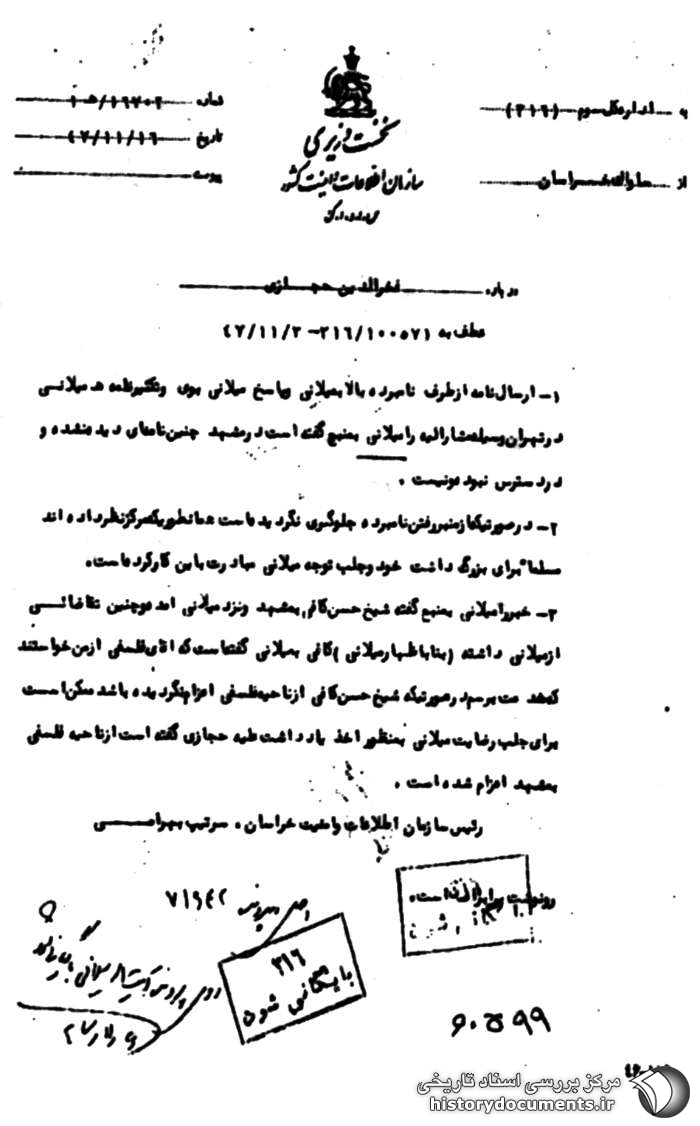 به اداره کل سوم (۳۱۶)
شماره ۱۶۷۰۲/هـ۱
از ساواک خراسان
تاریخ ۴۷/۱۱/۱۶
پیوست
نخست وزیری
سازمان اطلاعات و امنیت کشور
س.ا.و.ا.ک
درباره فخرالدین حجازی
عطف به ۳۱۶/۱۰۰۵۷۱ - ۴۷/۱۱/۲
۱- ارسال نامه از طرف نامبرده بالا بمیلانی و پاسخ میلانی بوی و تکثیر نامه میلانی
در تهران وسیله مشارالیه را میلانی بمنبع گفته است در مشهد چنین نامه‌ای دیده نشده و
در دسترس نبوده و نیست .
۲- در صورتیکه از منبر رفتن نامبرده جلوگیری نگردیده است همانطوریکه مرکز نظر داده اند
مسلما" برای بزرگ داشت خود و جلب توجه میلانی مبادرت باین کار کرده است.
۳- خبر را میلانی بمنبع گفته شیخ حسن کافی بمشهد و نزد میلانی آمده و چنین تقاضائی
از میلانی داشته (بنا باظهار میلانی) کافی بمیلانی گفته است که آقای فلسفی از من خواستند
که خدمت برسم در صورتیکه شیخ حسن کافی از ناحیه فلسفی اعزام نگردیده باشد ممکن است
برای جلب رضایت میلانی بمنظور اخذ یادداشت علیه حجازی گفته است از ناحیه فلسفی
بمشهد اعزام شده است .
رئیس سازمان اطلاعات و امنیت خراسان . سرتیپ بهرامی
رونوشت برابر اصل است.
اصل در پرونده ۷۱۹۴۲
۳۱۶
بایگانی شود
۶۰۵۹۹
مرکز بررسی اسناد تاریخی
historydocuments.ir